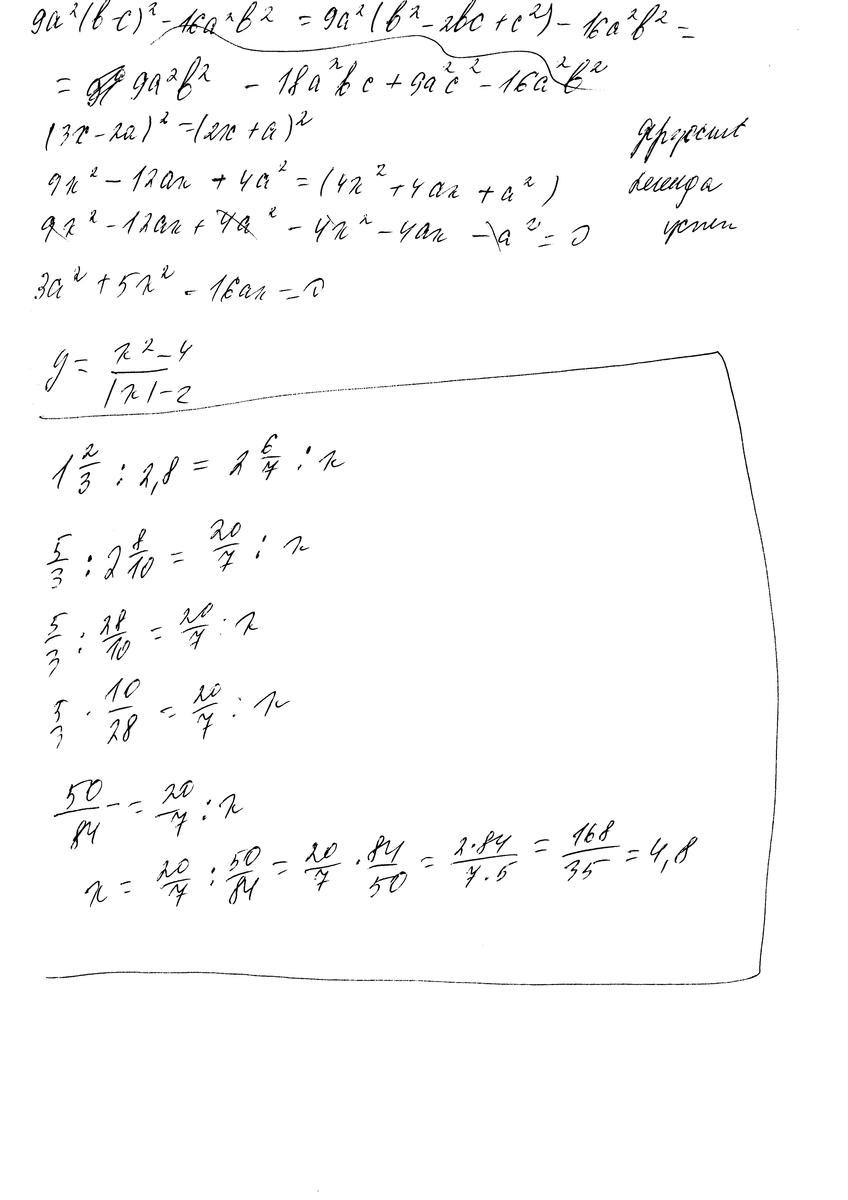 9a²(b-c)² - 16a²b² = 9a²(b² - 2bc + c²) - 16a²b² =
= 9a²b² - 18a²bc + 9a²c² - 16a²b²
(3x - 2a)² = (2x + a)²
9x² - 12ax + 4a² = (4x² + 4ax + a²) легенда
9x² - 12ax + 4a² - 4x² - 4ax - a² = 0 успех
3a² + 5x² - 16ax = 0
y = (x² - 4)/(|x| - 2)
1 2/3 : 2,8 = 2 6/7 : x
5/3 : 2 8/10 = 20/7 : x
5/3 : 28/10 = 20/7 : x
5/3 · 10/28 = 20/7 : x
50/84 = 20/7 : x
x = 20/7 : 50/84 = 20/7 · 84/50 = 2·84/7·5 = 168/35 = 4,8